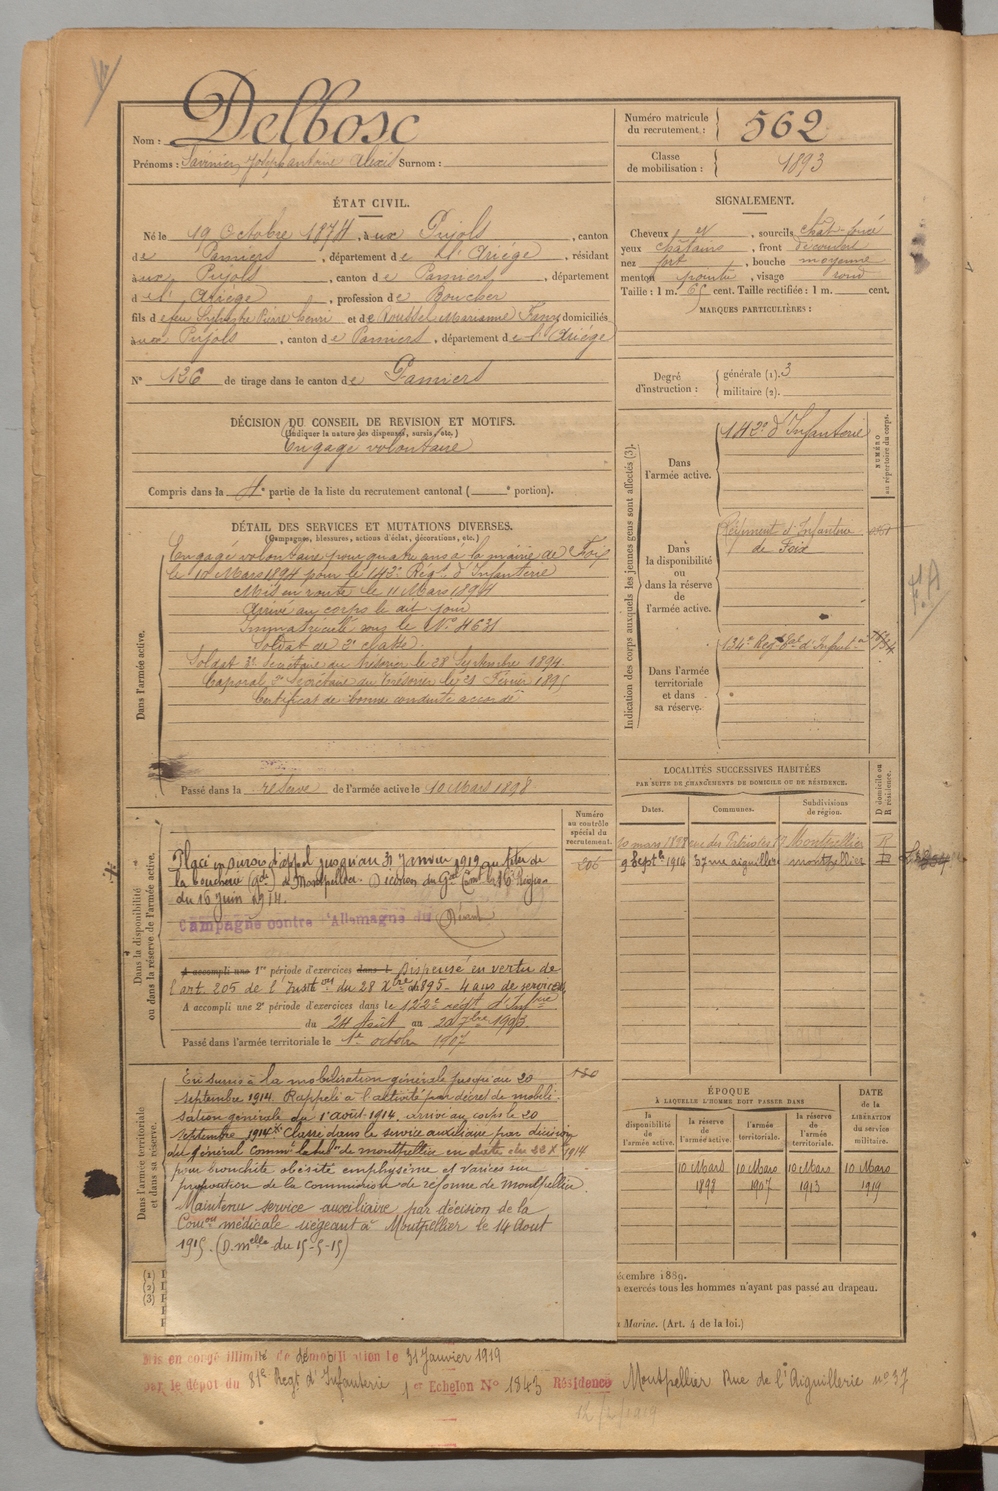 Nom : Delbosc
Prénoms : Joseph Antoine Alexis Surnom :
Numéro matricule du recrutement : 562
Classe de mobilisation : 1893
ÉTAT CIVIL.
Né le 19 Octobre 1874, à ux Pujols, canton
de Pamiers, département de l'Ariége, résidant
à ux Pujols, canton de Pamiers, département
de l'Ariége, profession de Boucher
fils de feu Sylvestre Pierre Henri et de Marianne domiciliés
à aux Pujols, canton de Pamiers, département de l'Ariége
N° 126 de tirage dans le canton de Pamiers
SIGNALEMENT.
Cheveux , sourcils chat-foncé
yeux châtains, front découvert
nez fort, bouche moyenne
menton pointu, visage rond
Taille : 1 m. 65 cent. Taille rectifiée : 1 m. cent.
MARQUES PARTICULIÈRES :
Degré d'instruction : générale (1). 3
militaire (2).
DÉCISION DU CONSEIL DE REVISION ET MOTIFS.
(Indiquer la nature des dispenses, sursis, etc.)
Engagé volontaire
Compris dans la 4e partie de la liste du recrutement cantonal ( e portion).
DÉTAIL DES SERVICES ET MUTATIONS DIVERSES.
(Campagnes, blessures, actions d'éclat, décorations, etc.)
Dans l'armée active.
Engagé volontaire pour quatre ans à la mairie de Foix
le 10 Mars 1894 pour le 142e Régt d'Infanterie
Mis en route le 11 Mars 1894
Arrivé au corps le dit jour
Immatriculé sous le N° 4631
Soldat de 2e classe.
Soldat 3e Secrétaire du trésorier le 28 Septembre 1894
Caporal 2e Secrétaire du Trésorier le 21 Février 1895
Certificat de bonne conduite accordé
Passé dans la réserve de l'armée active le 10 Mars 1898
Indication des corps auxquels les jeunes gens sont affectés (3).
NUMÉRO au répertoire du corps.
Dans l'armée active.
142e d'Infanterie
Dans la disponibilité ou dans la réserve de l'armée active.
Régiment d'Infanterie
de Foix
Dans l'armée territoriale et dans sa réserve.
134e Regt d'Infant
F.A
LOCALITÉS SUCCESSIVES HABITÉES
PAR SUITE DE CHANGEMENTS DE DOMICILE OU DE RÉSIDENCE.
Dates. Communes. Subdivisions de région. D domicile ou R résidence.
10 mars 1898 rue des Patriotes 19 Montpellier R
9 Septbre 1914 37 rue aiguillerie montpellier R
Numéro au contrôle spécial du recrutement.
Dans la disponibilité ou dans la réserve de l'armée active.
Placé en sursis d'appel jusqu'au 31 Janvier 1919 au titre de
la boucherie à Montpellier. Décision du Gal Comt la 16e Région
du 16 juin 1914.
Campagne contre l'Allemagne du
A accompli une 1re période d'exercices dans l Dispensé en vertu de
l'art. 205 de l'Instron du 28 Xbre 1895 - 4 ans de services
A accompli une 2e période d'exercices dans le 122e régt d'Infrie
du 24 Août au 20 7bre 1903.
Passé dans l'armée territoriale le 1er octobre 1907
Dans l'armée territoriale et dans sa réserve.
En sursis à la mobilisation générale jusqu'au 20
septembre 1914. Rappelé à l'activité par décret de mobili-
sation générale du 1er août 1914. arrivé au corps le 20
septembre 1914. Classé dans le service auxiliaire par décision
du général Commt la subon de montpellier en date du 22 Xbre 1914
pour bronchite obésité emphysème et varices sur
proposition de la commission de réforme de montpellier.
Maintenu service auxiliaire par décision de la
Comon médicale siégeant à Montpellier le 14 Août
1915. (D. melle du 15-5-15)
ÉPOQUE
À LAQUELLE L'HOMME DOIT PASSER DANS
la disponibilité de l'armée active. la réserve de l'armée active. l'armée territoriale. la réserve de l'armée territoriale.
DATE de la LIBÉRATION du service militaire.
10 Mars 10 Mars 10 Mars 10 Mars
1898 1907 1913 1919
(1)
(2)
(3)
écembre 1889.
exercés tous les hommes n'ayant pas passé au drapeau.
Marine. (Art. 4 de la loi.)
Mis en congé illimité de démobilisation le 31 Janvier 1919
par le dépôt du 81e Regt d'Infanterie 1er Echelon N° 1843 Résidence Montpellier Rue de l'Aiguillerie n° 37